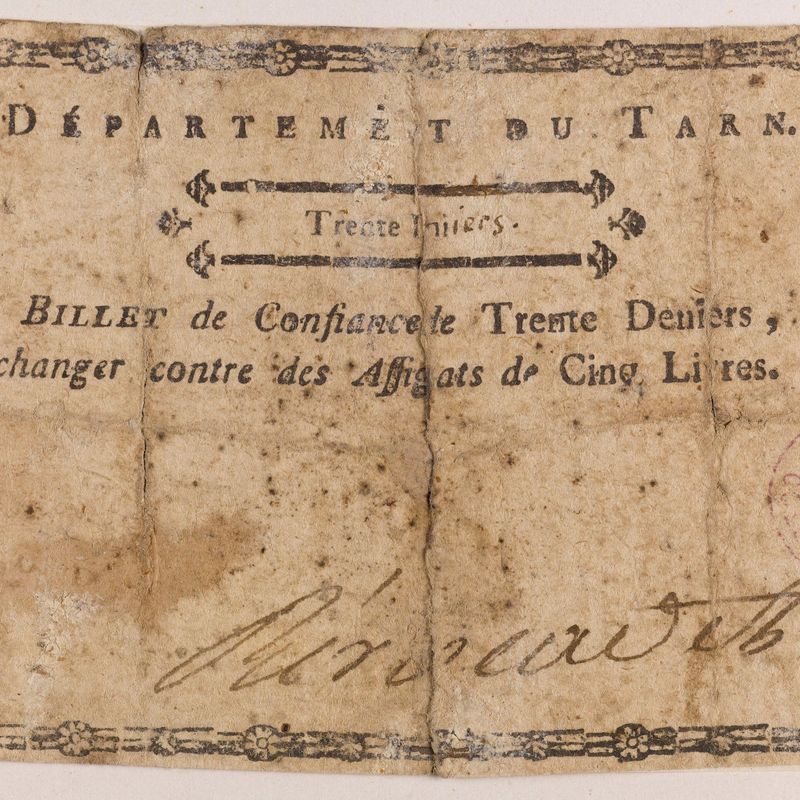 DÉPARTEMẼT DU TARN.
Trente Deniers.
BILLET de Confiance de Trente Deniers,
changer contre des Aſſigats de Cinq Livres.